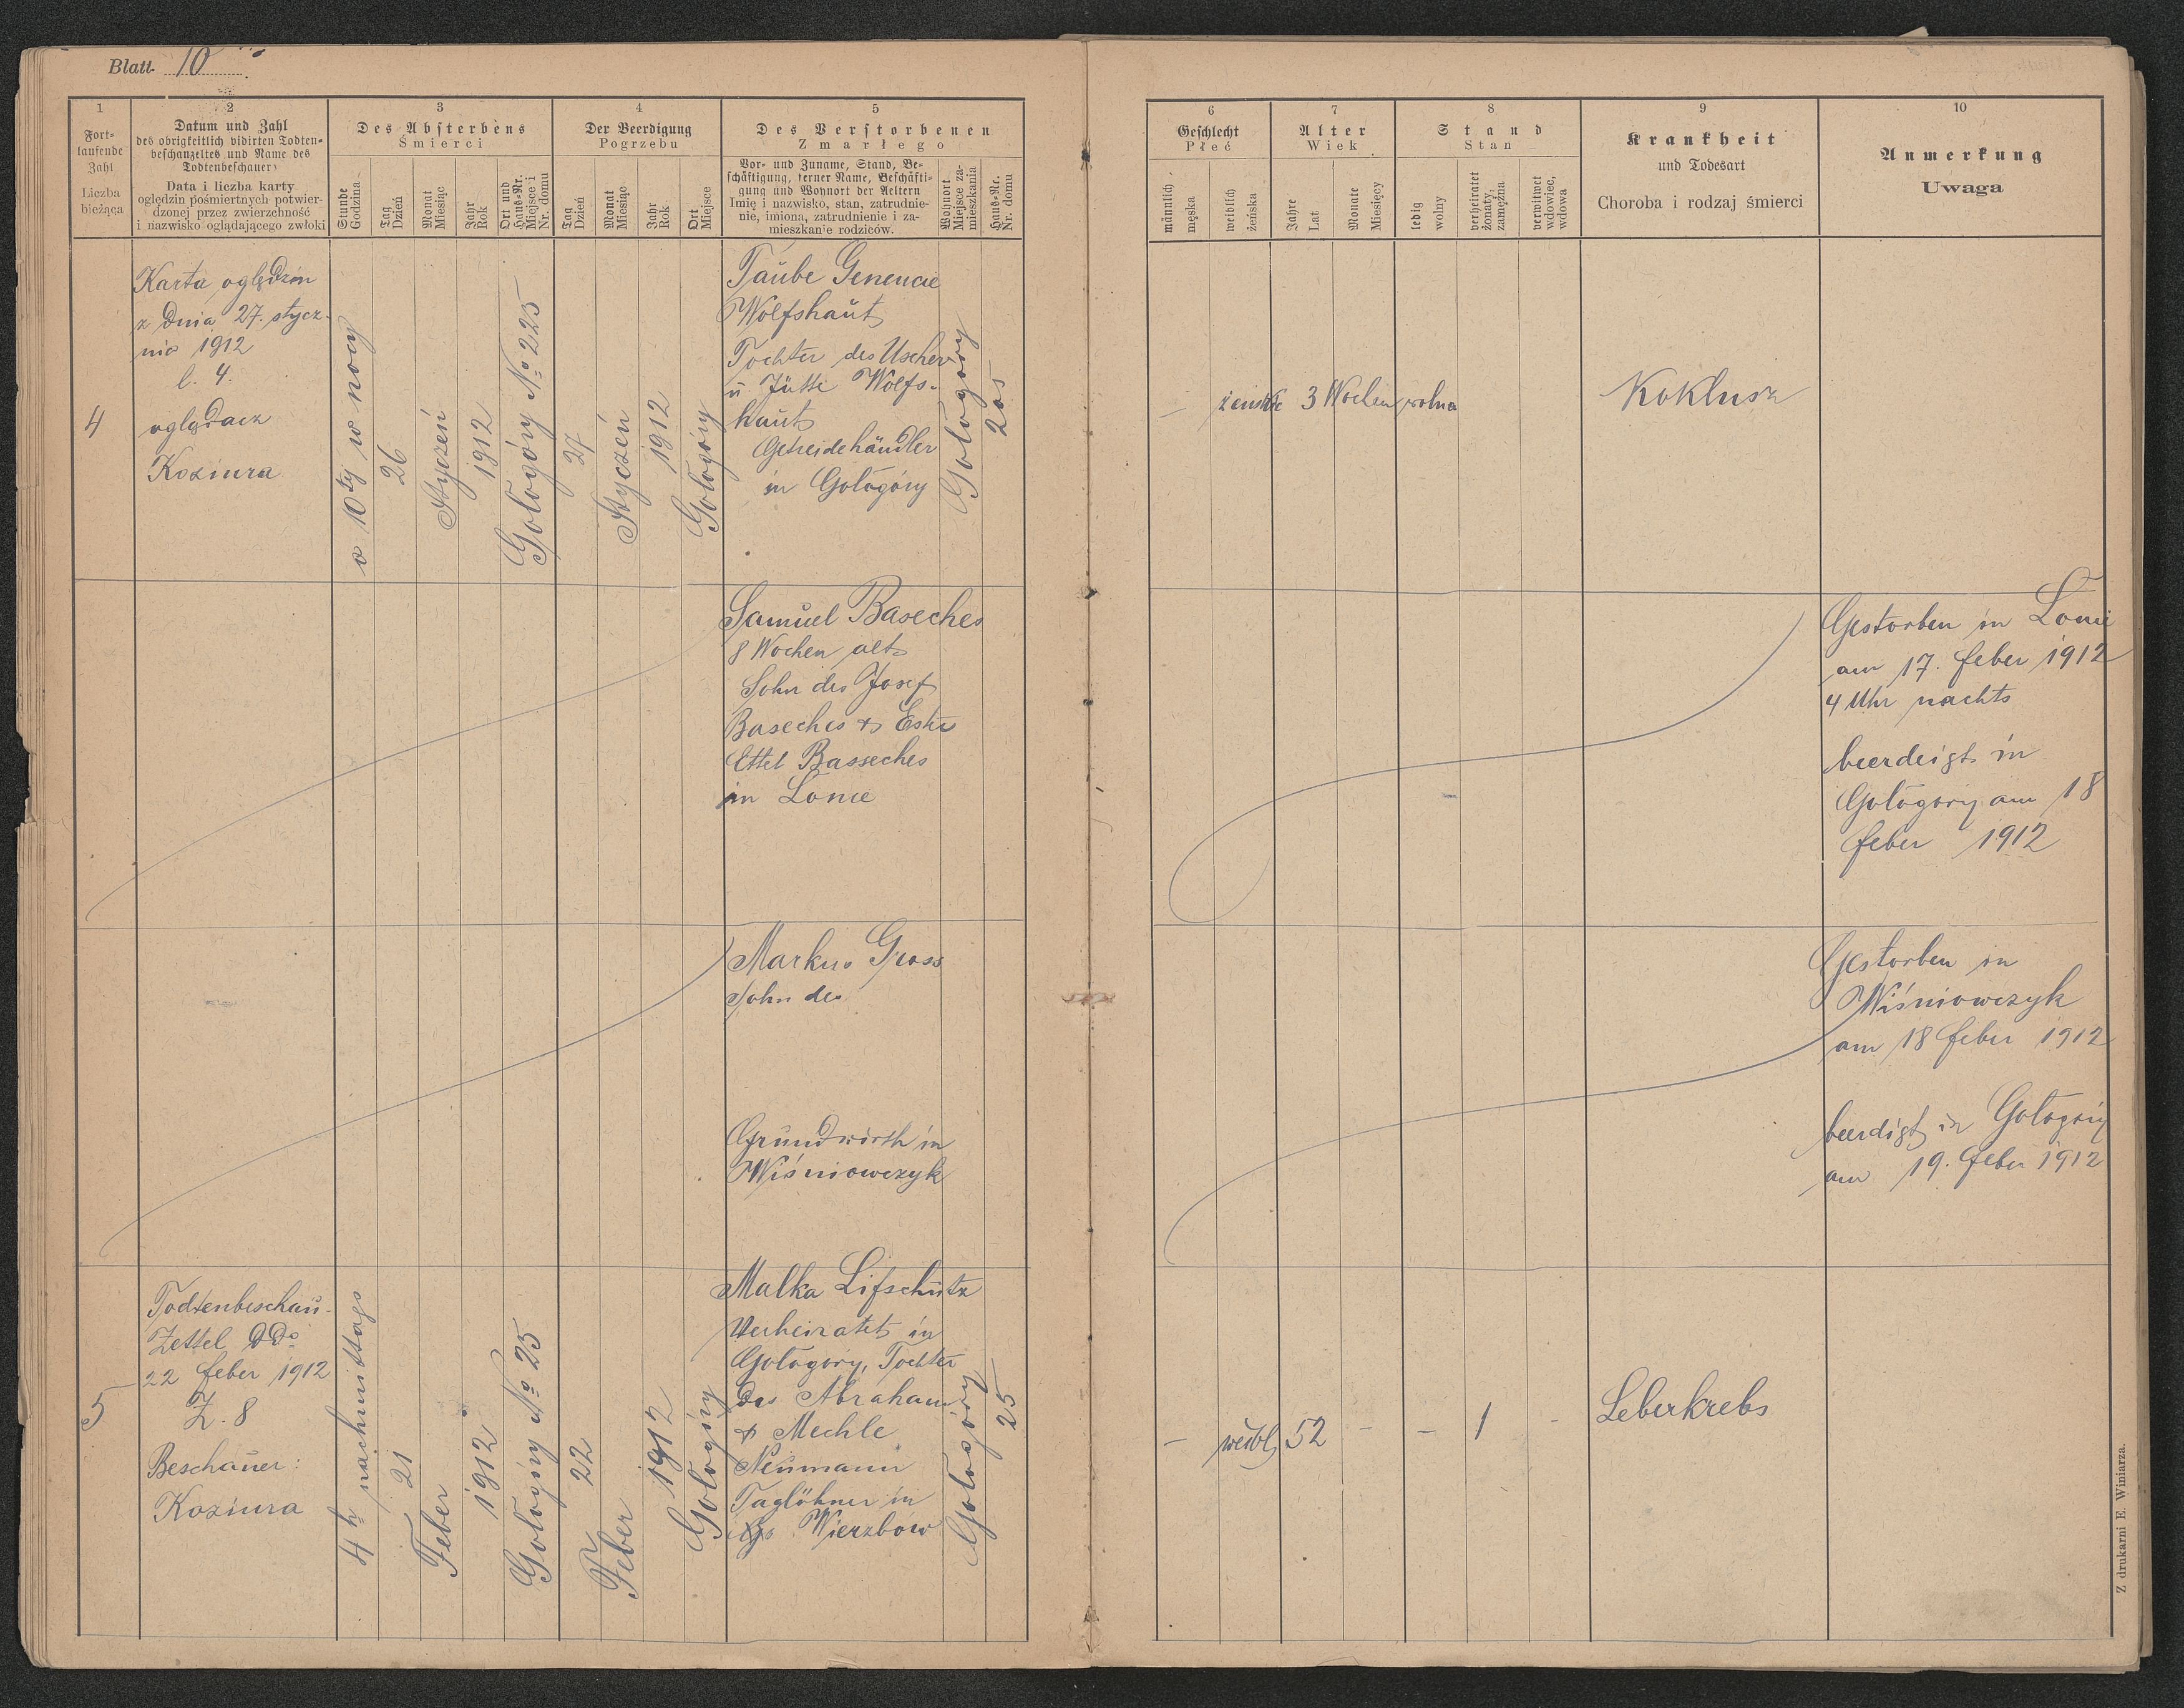 Blatt 10
1
Fort-
laufende
Zahl
Liczba
bieżąca
2
Datum und Zahl
des obrigkeitlich vidirten Todten-
beschauzeltes und Name des
Todtenbeschauers
Data i liczba karty
oględzin pośmiertnych potwier-
dzonej przez zwierzchność
i nazwisko oglądającego zwłoki
3
Des Absterbens
Śmierci
Stunde
Godzina
Tag
Dzień
Monat
Miesiąc
Jahr
Rok
Ort und
Haus-Nr.
Miejsce i
Nr. domu
4
Der Beerdigung
Pogrzebu
Tag
Dzień
Monat
Miesiąc
Jahr
Rok
Ort
Miejsce
5
Des Verstorbenen
Zmarłego
Vor- und Zuname, Stand, Be-
schäftigung, ferner Name, Beschäfti-
gung und Wohnort der Aeltern
Imię i nazwisko, stan, zatrudnie-
nie, imiona, zatrudnienie i za-
mieszkanie rodziców.
Wohnort
Miejsce za-
mieszkania
Haus-Nr.
Nr. domu
6
Geschlecht
Płeć
männlich
męska
weiblich
żeńska
7
Alter
Wiek
Jahre
Lat
Monate
Miesięcy
8
Stand
Stan
ledig
wolny
verheiratet
żonaty,
zamężna
verwitwet
wdowiec,
wdowa
9
Krankheit
und Todesart
Choroba i rodzaj śmierci
10
Anmerkung
Uwaga
4
Karta oględzin
z dnia 27. stycz-
nia 1912
l. 4.
oglądacz
Koziura
o 10tej w nocy
26
Styczeń
1912
Gołogóry No 225
27
Styczeń
1912
Gołogóry
Taube
Wolfshaut
Tochter des Uscher
u Jütte Wolfs-
haut
Getreidehändler
in Gołogóry
Gołogóry
205
—
3 Wochen
wolna
Koklusz
Samuel Baseches
8 Wochen alt
Sohn des Josef
Baseches & Ester
Ettel Basseches
in Lonie
Gestorben in Lonie
am 17. feber 1912
4 Uhr nachts
beerdeigt in
Gołogóry am 18
feber 1912
Markus Gross
Sohn des
Grundwirth in
Wiśniowczyk
Gestorben in
Wiśniowczyk
am 18 feber 1912
beerdigt in Gołogóry
am 19. feber 1912
5
Todtenbeschau-
Zettel ddo
22 feber 1912
Z. 8
Beschauer:
Koziura
4 h nachmittags
21
Feber
1912
Gołogóry No 25
22
Feber
1912
Gołogóry
Malka Lifschütz
Verheiratet in
Gołogóry, Tochter
des Abraham
& Mechle
Neumann
Taglöhner in
Wierzbów
Gołogóry
25
—
weibl
52
—
—
1
-
Leberkrebs
Z drukarni E. Winiarza.